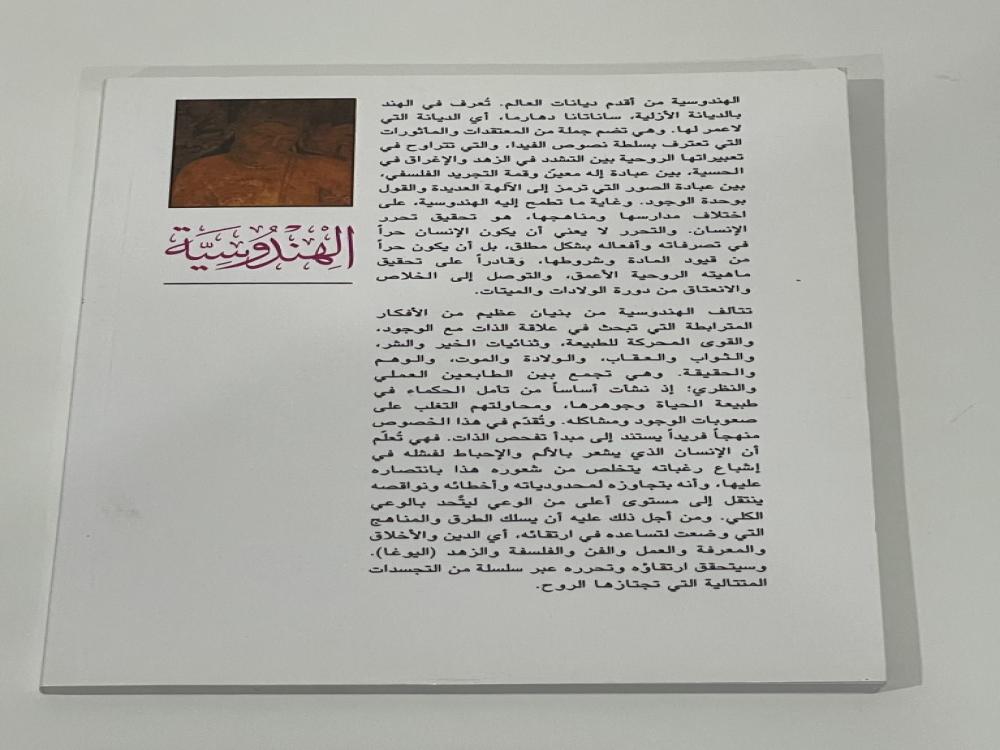 الهندوسية من أقدم ديانات العالم. تُعرف في الهند
بالديانة الأزلية، ساناتانا دهارما، أي الديانة التي
لاعمر لها. وهي تضم جملة من المعتقدات والمأثورات
التي تعترف بسلطة نصوص الفيدا، والتي تتراوح في
تعبيراتها الروحية بين التشدد في الزهد والإغراق في
الحسية، بين عبادة إله معينّ وقمة التجريد الفلسفي،
بين عبادة الصور التي ترمز إلى الآلهة العديدة والقول
بوحدة الوجود. وغاية ما تطمح إليه الهندوسية، على
اختلاف مدارسها ومناهجها، هو تحقيق تحرر
الإنسان. والتحرر لا يعني أن يكون الإنسان حراً
في تصرفاته وأفعاله بشكل مطلق، بل أن يكون حراً
من قيود المادة وشروطها، وقادراً على تحقيق
ماهيته الروحية الأعمق، والتوصل إلى الخلاص
والانعتاق من دورة الولادات والميتات.
تتألف الهندوسية من بنيان عظيم من الأفكار
المترابطة التي تبحث في علاقة الذات مع الوجود،
والقوى المحركة للطبيعة، وثنائيات الخير والشر،
والثواب والعقاب، والولادة والموت، والوهم
والحقيقة. وهي تجمع بين الطابعين العملي
والنظري؛ إذ نشأت أساساً من تأمل الحكماء في
طبيعة الحياة وجوهرها، ومحاولتهم التغلب على
صعوبات الوجود ومشاكله. وتُقدّم في هذا الخصوص
منهجاً فريداً يستند إلى مبدأ تفحص الذات. فهي تُعلّم
أن الإنسان الذي يشعر بالألم والإحباط لفشله في
إشباع رغباته يتخلص من شعوره هذا بانتصاره
عليها، وأنه بتجاوزه لمحدودياته وأخطائه ونواقصه
ينتقل إلى مستوى أعلى من الوعي ليتّحد بالوعي
الكلي. ومن أجل ذلك عليه أن يسلك الطرق والمناهج
التي وضعت لتساعده في ارتقائه، أي الدين والأخلاق
والمعرفة والعمل والفن والفلسفة والزهد (اليوغا).
وسيتحقق ارتقاؤه وتحرره عبر سلسلة من التجسدات
المتتالية التي تجتازها الروح.
الهِنْدُوسِيَّة